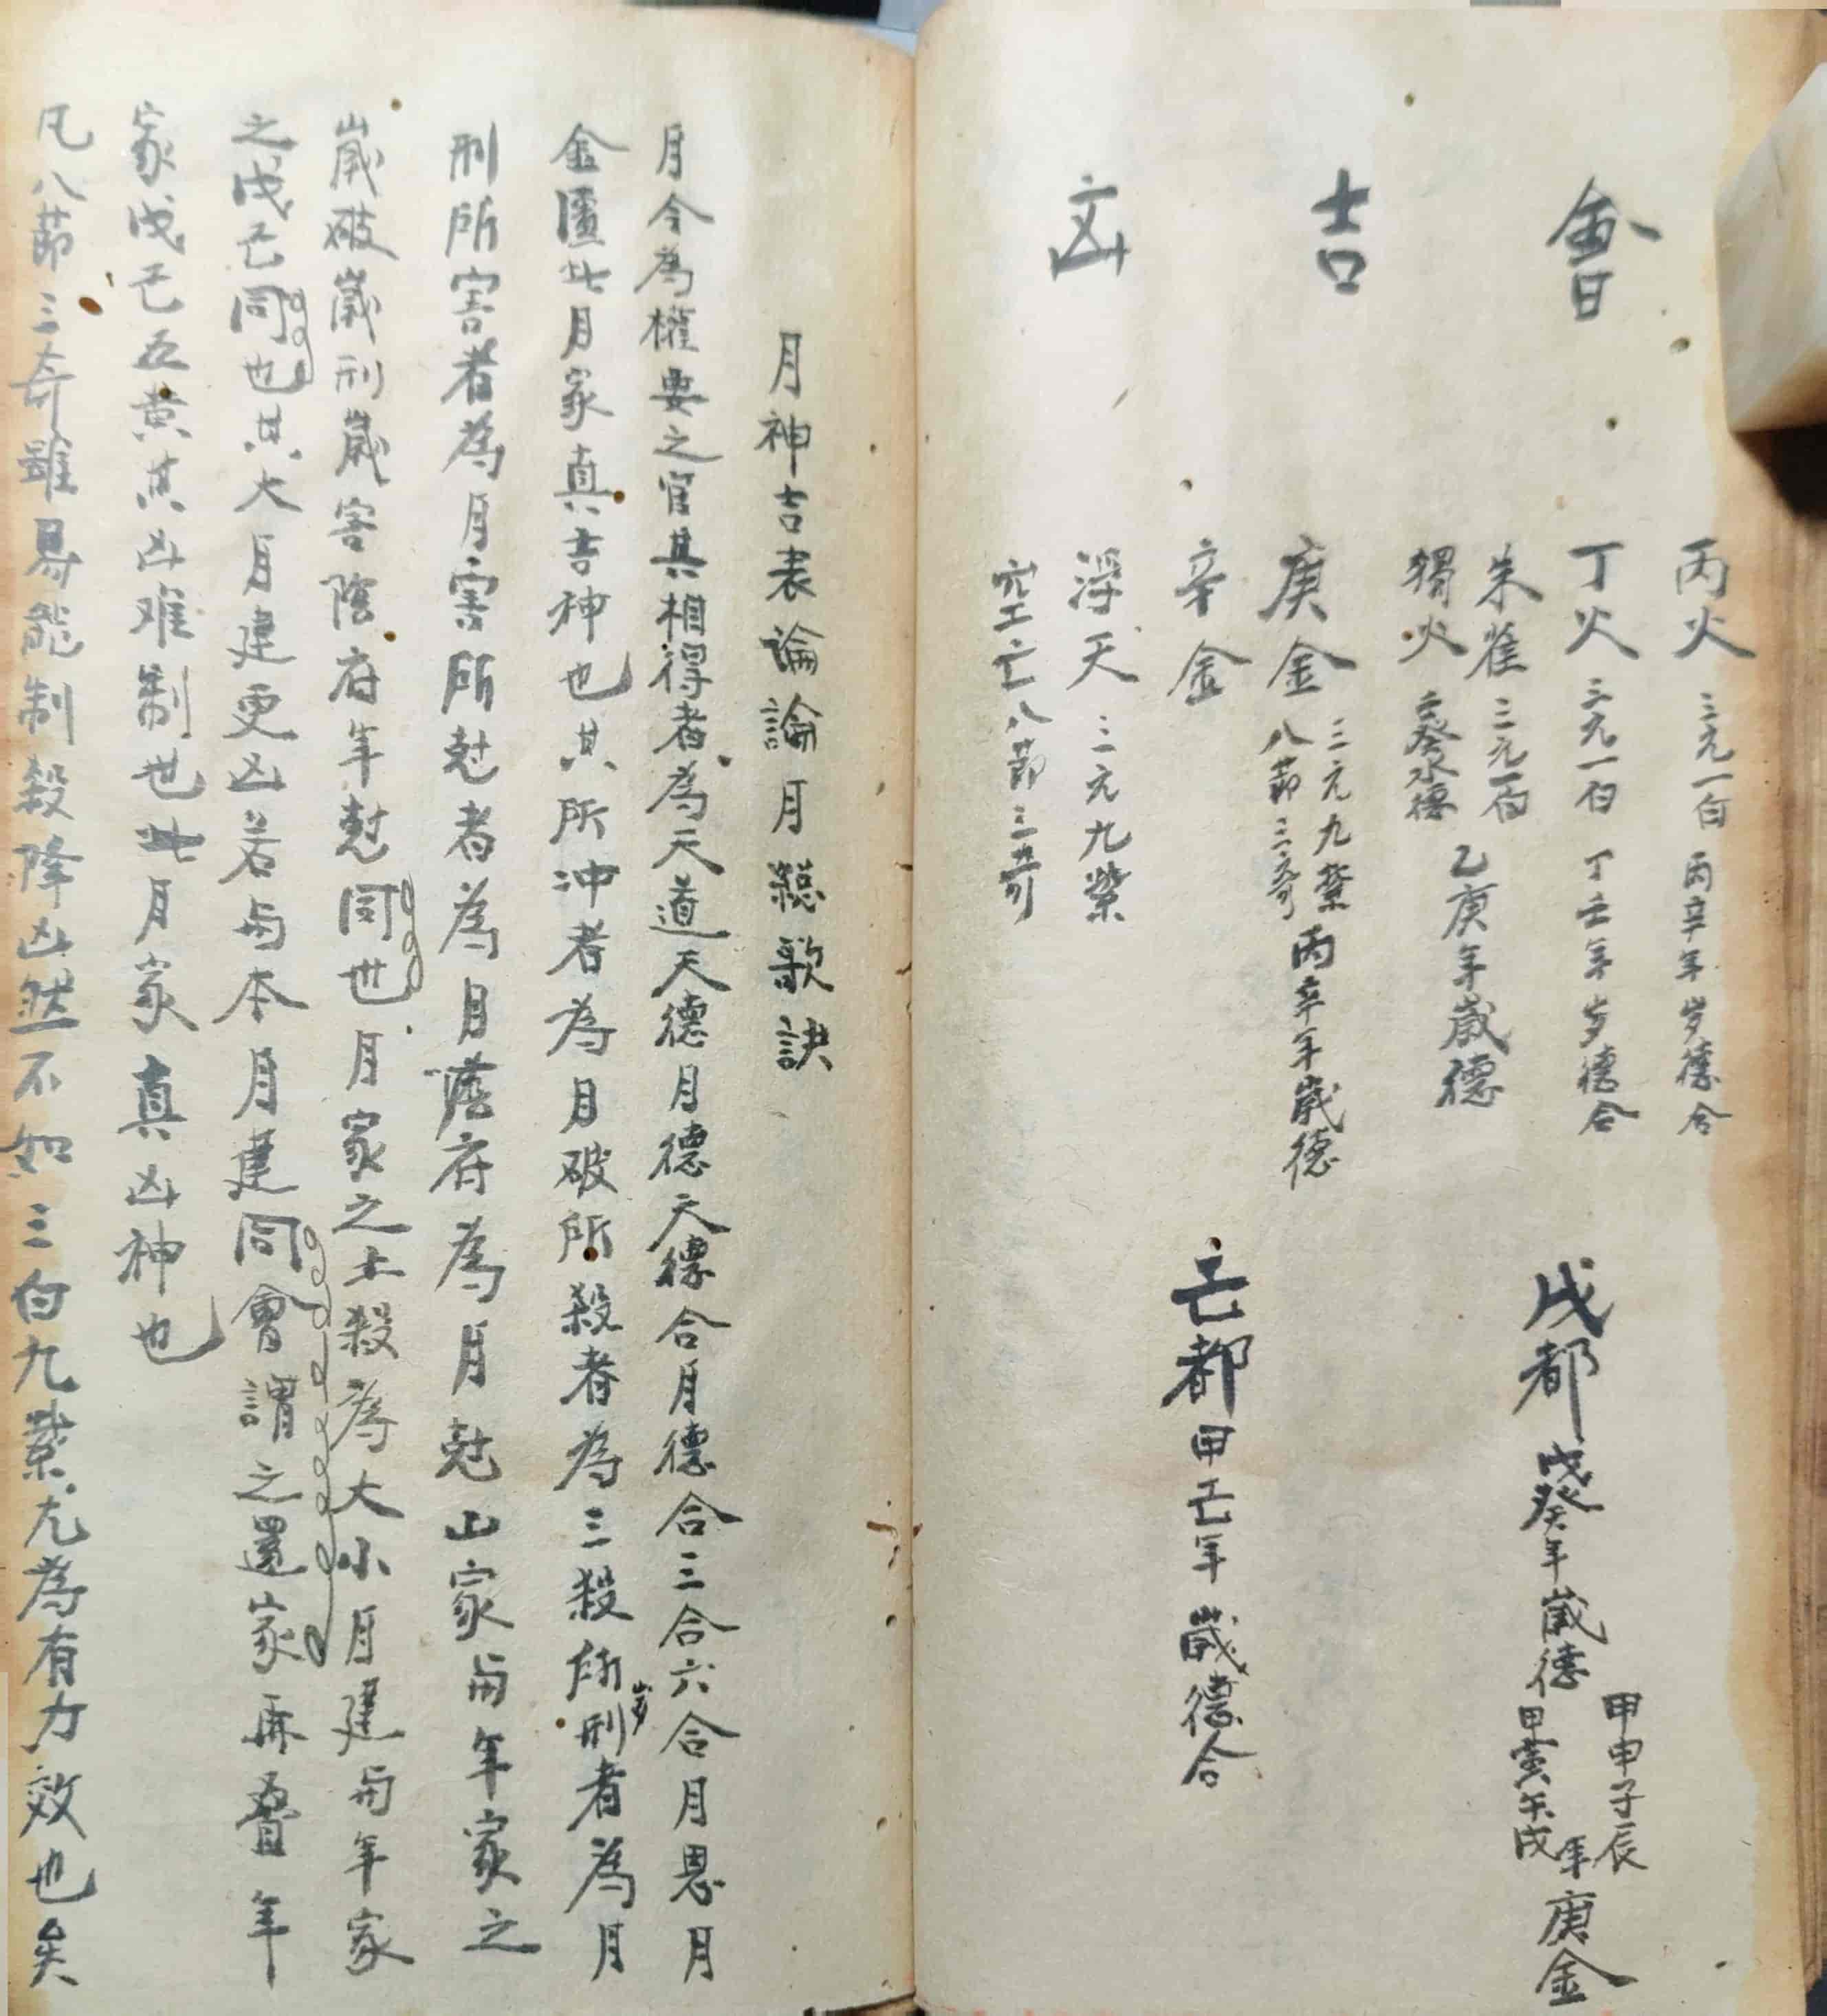 會
吉
凶
丙火 三元一白 丙辛年岁德合
丁火 三元一白 丁壬年岁德合
朱雀 三元一白
獨火 壬癸水德
乙庚年歲德
庚金 三元九紫
八節三奇
丙辛年歲德
辛金
浮天 三元九紫
空亡 八節三奇
戊都 戊癸年歲德
甲申子辰
甲寅午戌
年庚金
己都 甲己年歲德合
月神吉表論論月總歌訣
月令為權要之官其相得者為天道天德月德天德合月德合三合六合月恩月
金匱此月家真吉神也其所冲者為月破所殺者為三殺所刑者為月
岁
刑所害者為月害所尅者為月蔭府為月尅山家与年家之
歲破歲刑歲害陰府年尅同也月家之土殺為大小月建与年家
之戊己同也其大月建更凶若与本月建同會謂之還家再叠年
家戊己五黄其凶难制也此月家真凶神也
凡八節三奇雖易能制殺降凶然不如三白九紫尤為有力效也矣